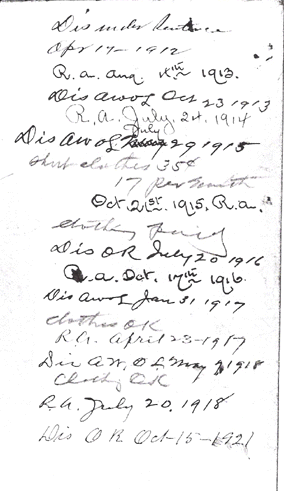 Dis under Sentence
Apr 17-1912
R.a. aug 14th 1913.
Dis awol Oct 23 1913
R.A. July. 24. 1914
July
Dis Aw of 29 1915
Short clothes 35¢
17 per month
Oct 21st. 1915. R.a.
clothing paid
Dis OR July 20 1916
R.a. Oct. 17th 1916.
Dis awol Jan 31 1917
clothes OK
R.A. April 23-1917
Dis A.W.O.L. May 7 1918
Clothg OK
R.A. July 20. 1918
Dis OR Oct-15-1921